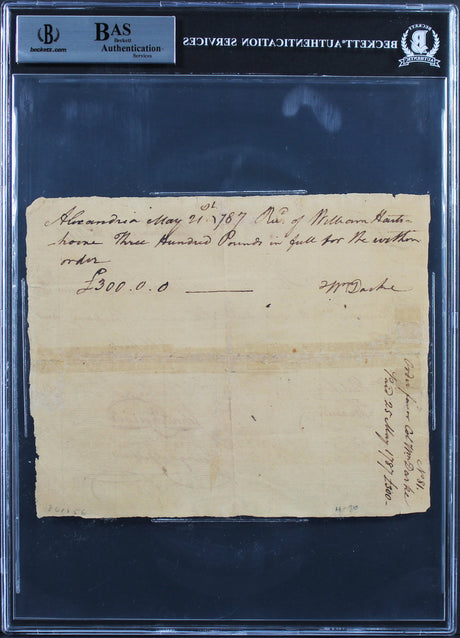 B
beckett.com
BAS
Beckett
Authentication
Services
BECKETT AUTHENTICATION SERVICES
B
BECKETT
AUTHENTIC
Alexandria May 21.st 1787 Recd. of William Harts-
horne Three Hundred Pounds in full for the within
order
£300.0.0 Wm Darke
No 81.
Order favor Col Wm Darke
Paid 25 May 1787 £300-